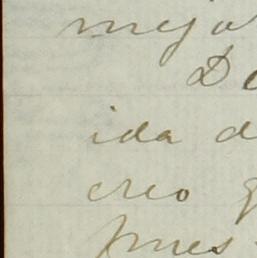 mejo
De
ida d
creo q
pues